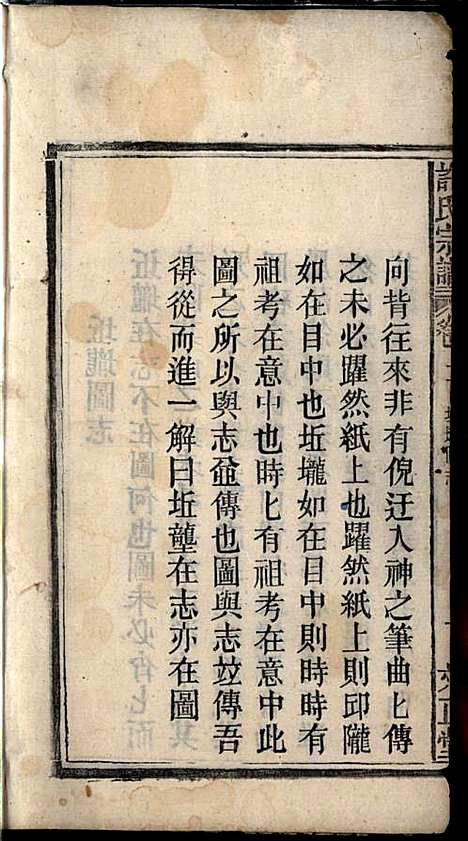 許氏宗譜
向背往來非有倪迂入神之筆曲匕傳
之未必躍然紙上也躍然紙上則邱隴
如在目中也坵壠如在目中則時時有
祖考在意中也時匕有祖考在意中此
圖之所以與志並傳也圖與志竝傳吾
得從而進一解曰坵壟在志亦在圖